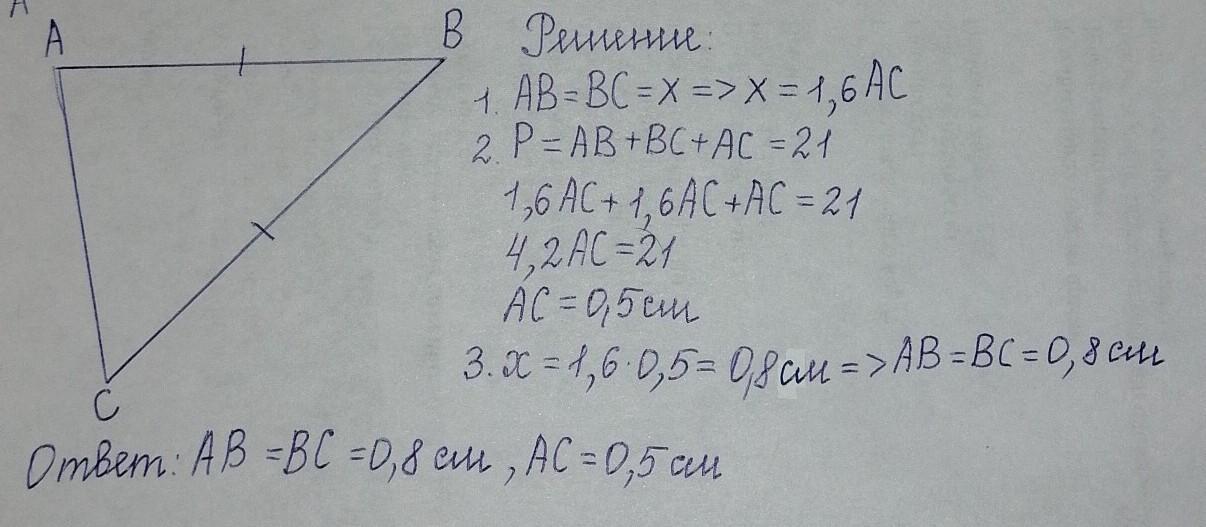 А
A
B
C
Решение:
1. AB = BC = X => X = 1,6 AC
2. P = AB + BC + AC = 21
1,6 AC + 1,6 AC + AC = 21
4,2 AC = 21
AC = 0,5 см
3. x = 1,6 · 0,5 = 0,8 см => AB = BC = 0,8 см
Ответ: AB = BC = 0,8 см, AC = 0,5 см